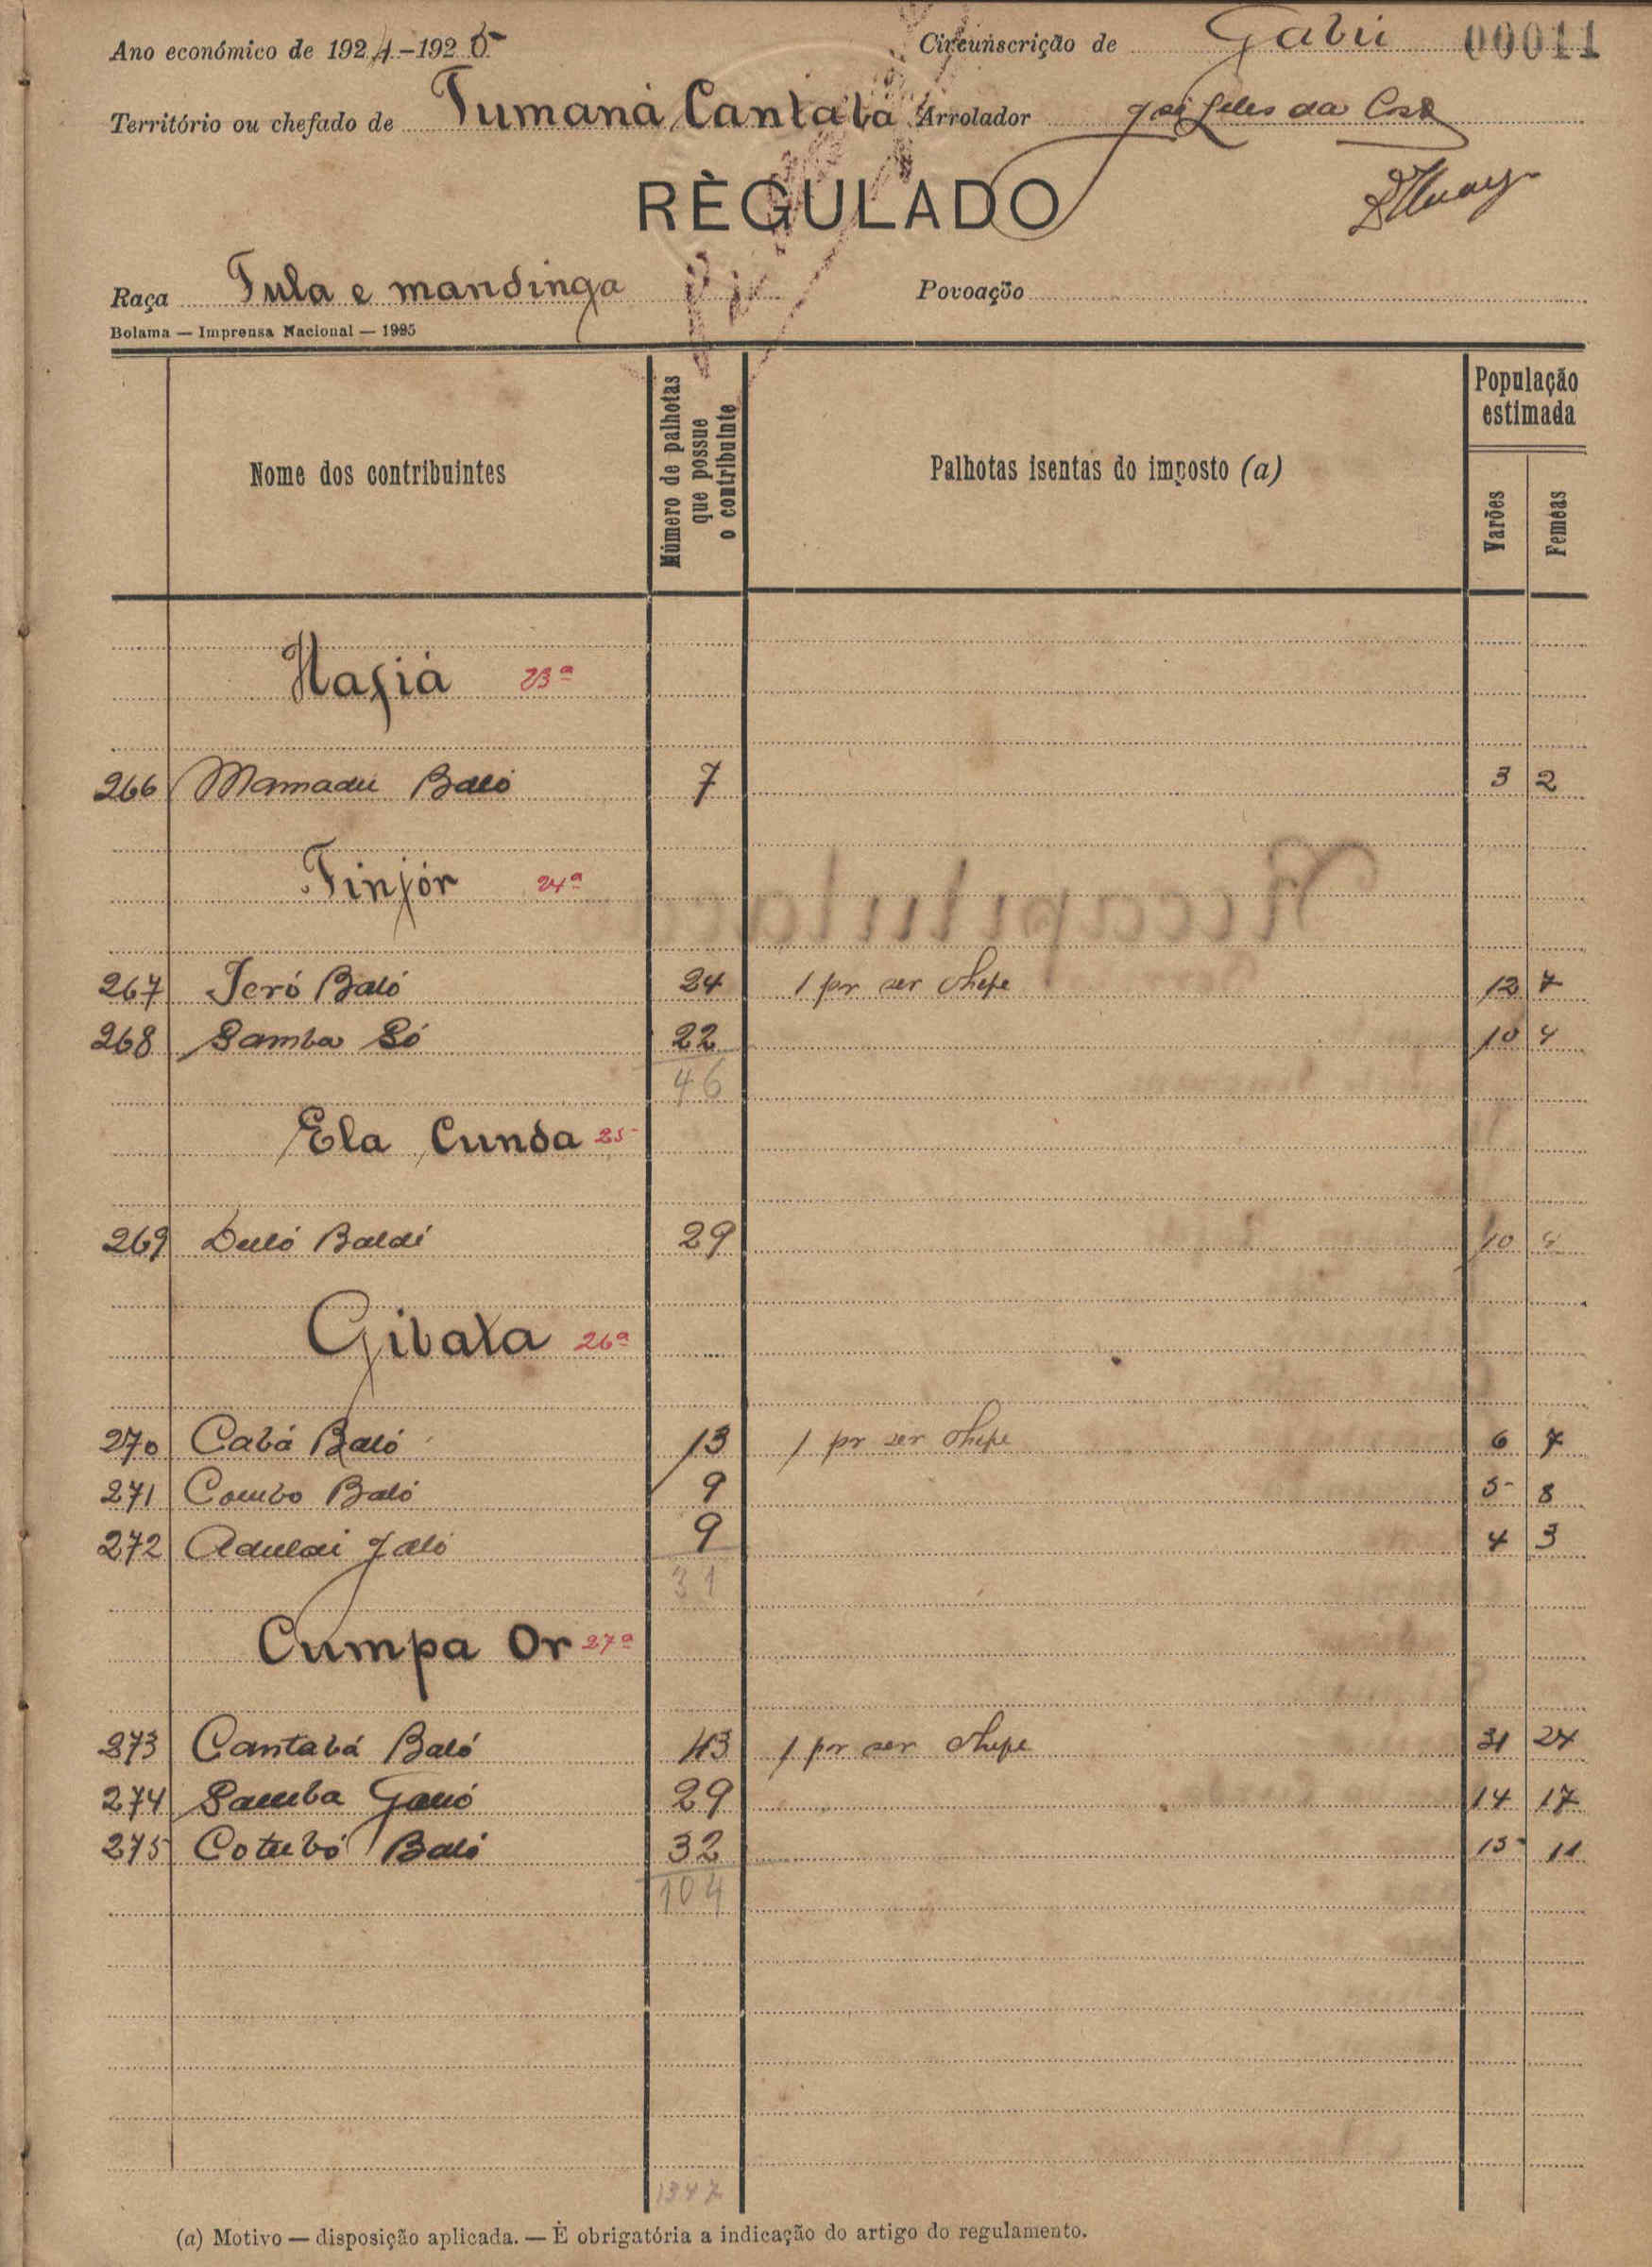 Ano económico de 1924-1925 Circunscrição de Gabú 00011
Território ou chefado de Tumaná Cantabá Arrolador José Teles da Costa
RÈGULADO
Raça Fula e mandinga Povoação
Bolama — Imprensa Nacional — 1925
Nome dos contribuintes
Número de palhotas que possue o contribuinte
Palhotas isentas do imposto (a)
População estimada
Varões
Femeas
Hafiá 23ª
266 Mamadú Baló 7 3 2
Finjór 24ª
267 Jeró Baló 24 1 por ser chefe 12 7
268 Samba Só 22 10 4
46
Ela Cunda 25
269 Duló Baldé 29 10 4
Gibata 26ª
270 Cabá Baló 13 1 por ser chefe 6 7
271 Combo Baló 9 5 8
272 Adulai Jaló 9 4 3
31
Cumpa Or 27ª
273 Cantabá Baló 43 1 por ser chefe 31 24
274 Samba Ganó 29 14 17
275 Cotubó Baló 32 15 11
104
1347
(a) Motivo — disposição aplicada. — É obrigatória a indicação do artigo do regulamento.